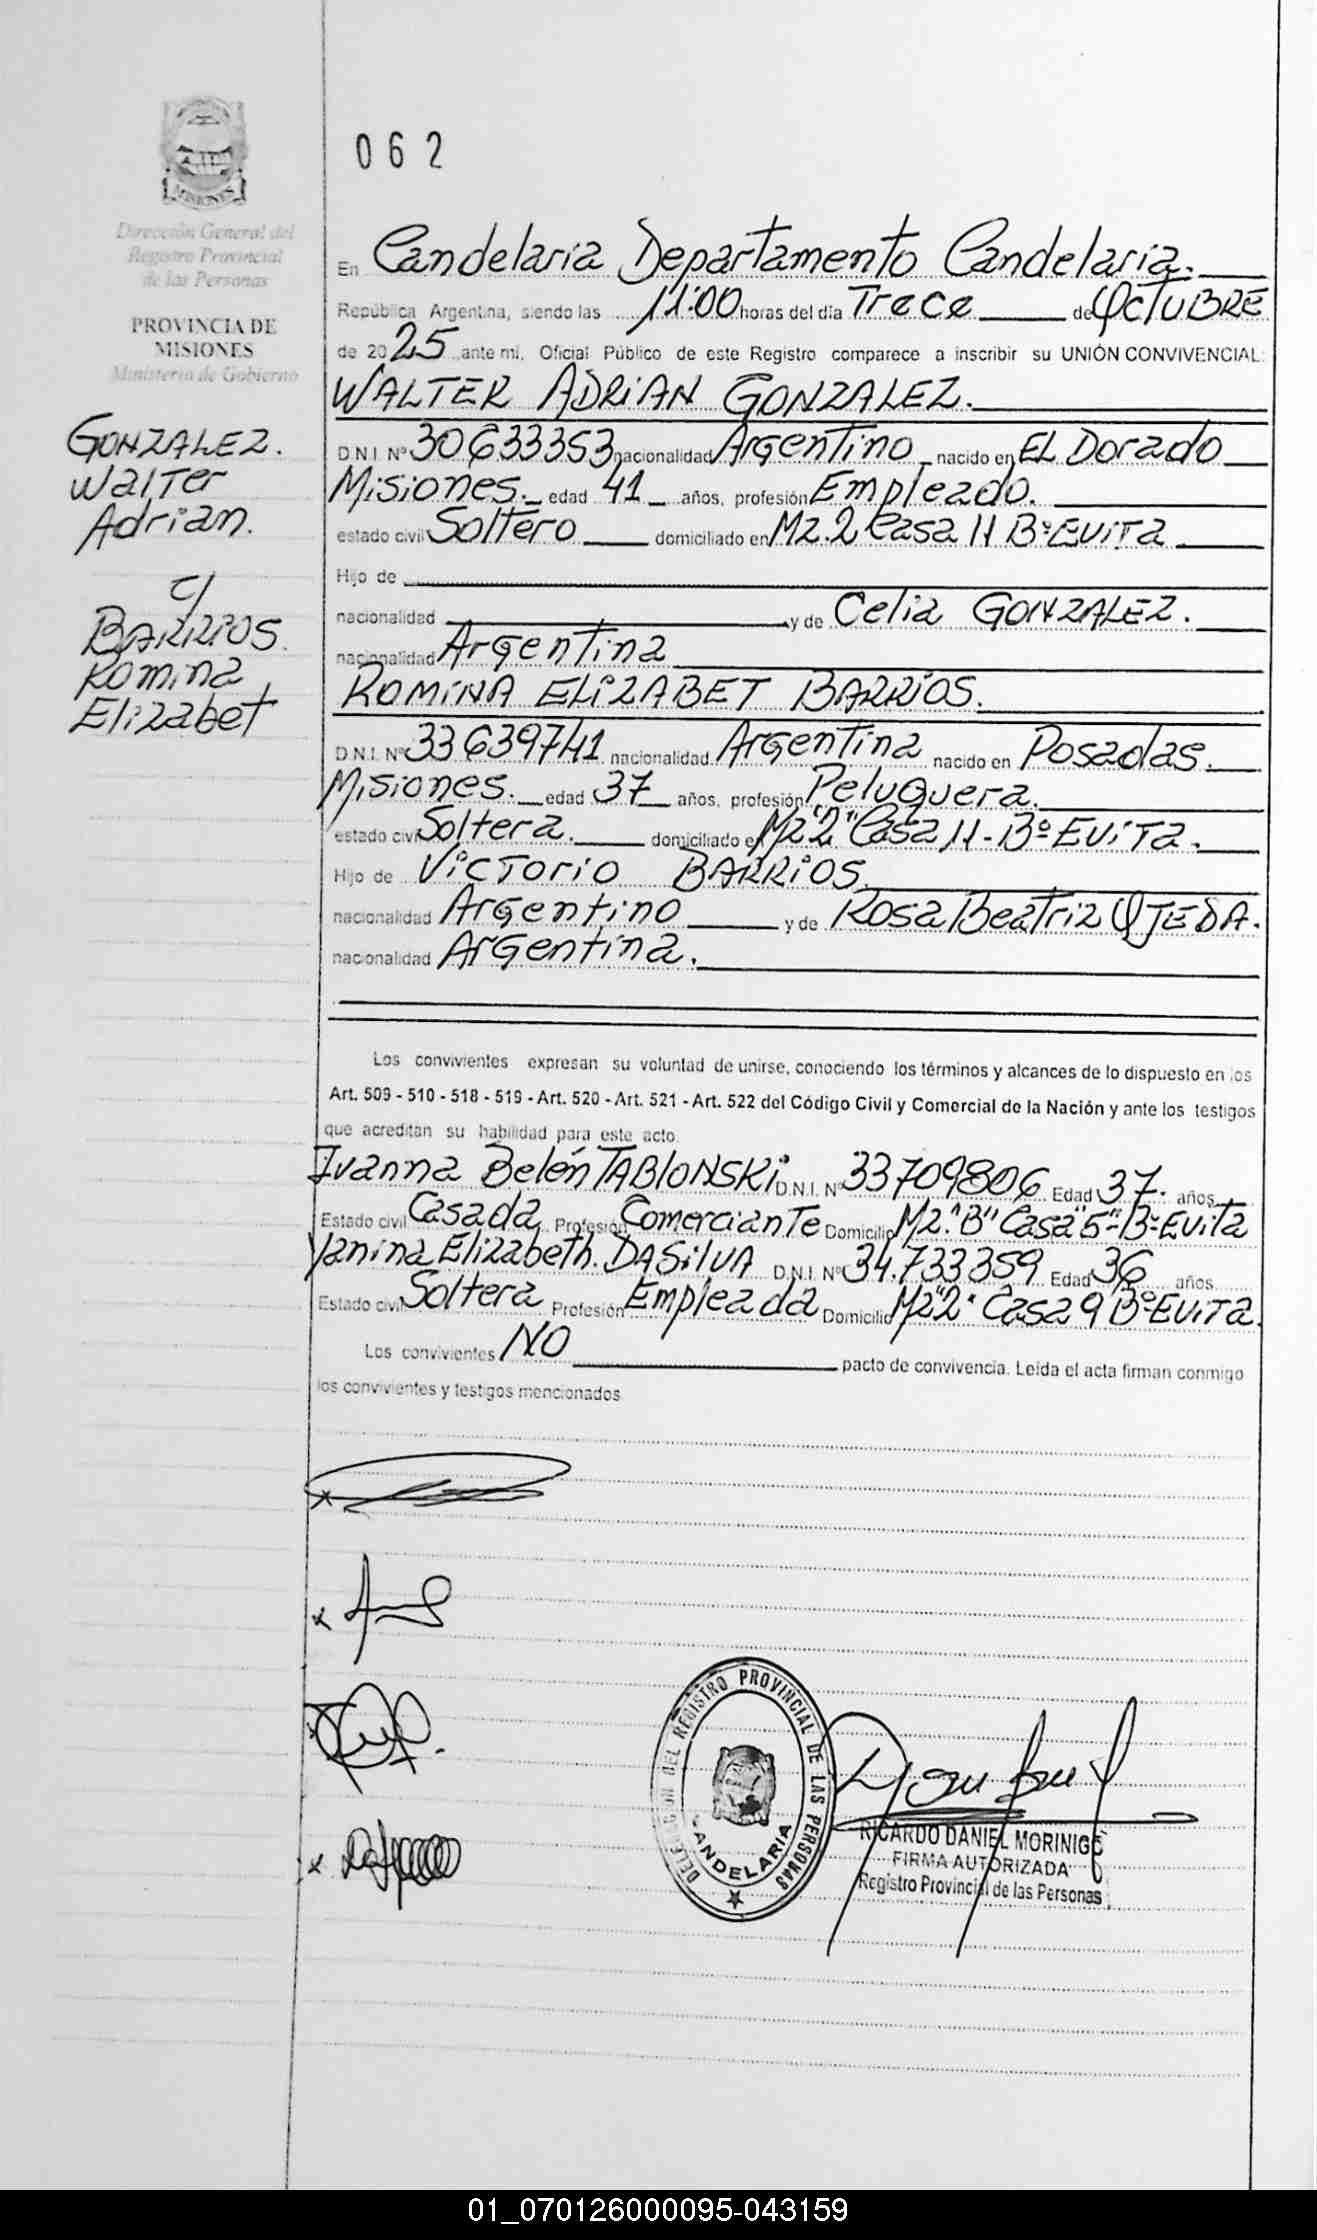 MISIONES
Dirección General del
Registro Provincial
de las Personas
PROVINCIA DE
MISIONES
Ministerio de Gobierno
GONZALEZ.
Walter
Adrian.
c/
BARRIOS.
Romina
Elizabet
062
En Candelaria Departamento Candelaria.
República Argentina, siendo las 11:00 horas del día Trece de OCTUBRE
de 2025 ante mi, Oficial Público de este Registro comparece a inscribir su UNIÓN CONVIVENCIAL:
WALTER ADRIAN GONZALEZ.
D.N.I. Nº 30633353 nacionalidad Argentino nacido en EL Dorado
Misiones. edad 41 años, profesión Empleado.
estado civil Soltero domiciliado en Mz.2 Casa 11 Bº EVITA
Hijo de
nacionalidad y de Celia GONZALEZ.
nacionalidad Argentina
ROMINA ELIZABET BARRIOS.
D.N.I. Nº 33639741 nacionalidad Argentina nacido en Posadas.
Misiones. edad 37 años, profesión Peluquera.
estado civil Soltera. domiciliado en Mz "2" Casa 11 - Bº EVITA.
Hijo de Victorio BARRIOS.
nacionalidad Argentino y de Rosa Beatriz OJEDA.
nacionalidad Argentina.
Los convivientes expresan su voluntad de unirse, conociendo los términos y alcances de lo dispuesto en los
Art. 509 - 510 - 518 - 519 - Art. 520 - Art. 521 - Art. 522 del Código Civil y Comercial de la Nación y ante los testigos
que acreditan su habilidad para este acto.
Ivanna Belén TABLONSKI D.N.I. Nº 33709806 Edad 37. años
Estado civil Casada Profesión Comerciante Domicilio Mz. "B" Casa "5" - Bº Evita
Yanina Elizabeth. DA SILVA D.N.I. Nº 34.733359 Edad 36 años
Estado civil Soltera Profesión Empleada Domicilio Mz "2" Casa 9 Bº EVITA.
Los convivientes NO pacto de convivencia. Leída el acta firman conmigo
los convivientes y testigos mencionados
DELEGACION DEL REGISTRO PROVINCIAL DE LAS PERSONAS
CANDELARIA
RICARDO DANIEL MORINIGO
FIRMA AUTORIZADA
Registro Provincial de las Personas
01_070126000095-043159